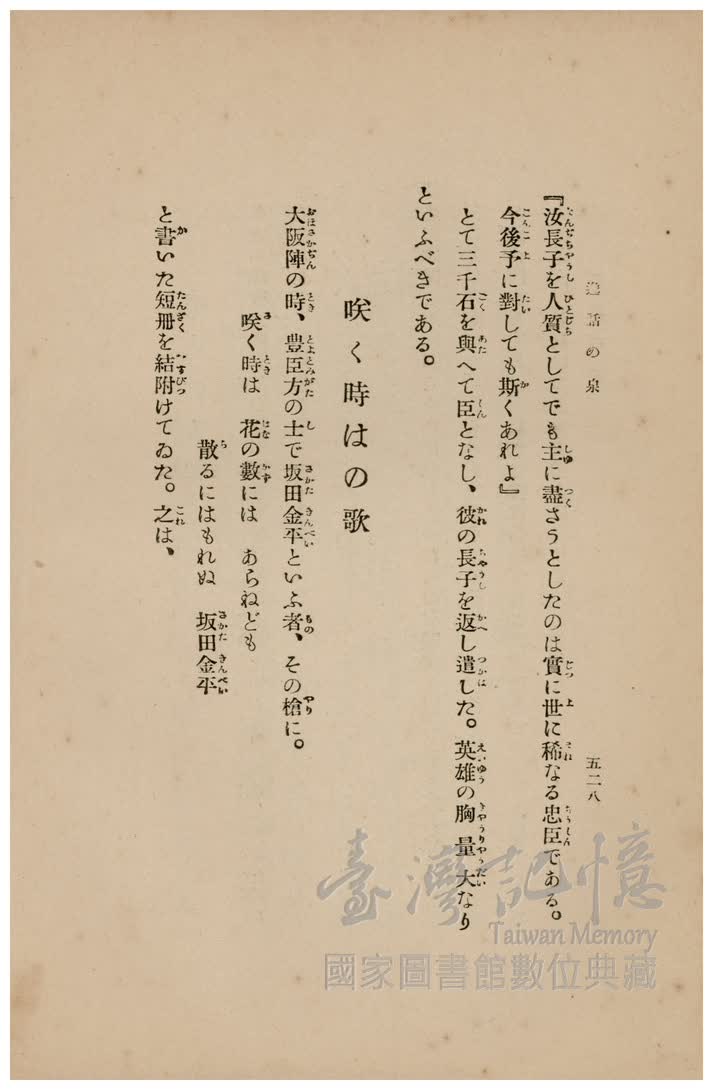 逸話の泉
五二八
『汝長子を人質としてでも主に盡さうとしたのは實に世に稀なる忠臣である。
今後予に對しても斯くあれよ』
とて三千石を與へて臣となし、彼の長子を返し遣した。英雄の胸量大なり
といふべきである。
咲く時はの歌
大阪陣の時、豊臣方の士で坂田金平といふ者、その槍に。
咲く時は　花の數には　あらねども
散るにはもれぬ　坂田金平
と書いた短册を結附けてゐた。之は、
臺灣記憶
Taiwan Memory
國家圖書館數位典藏